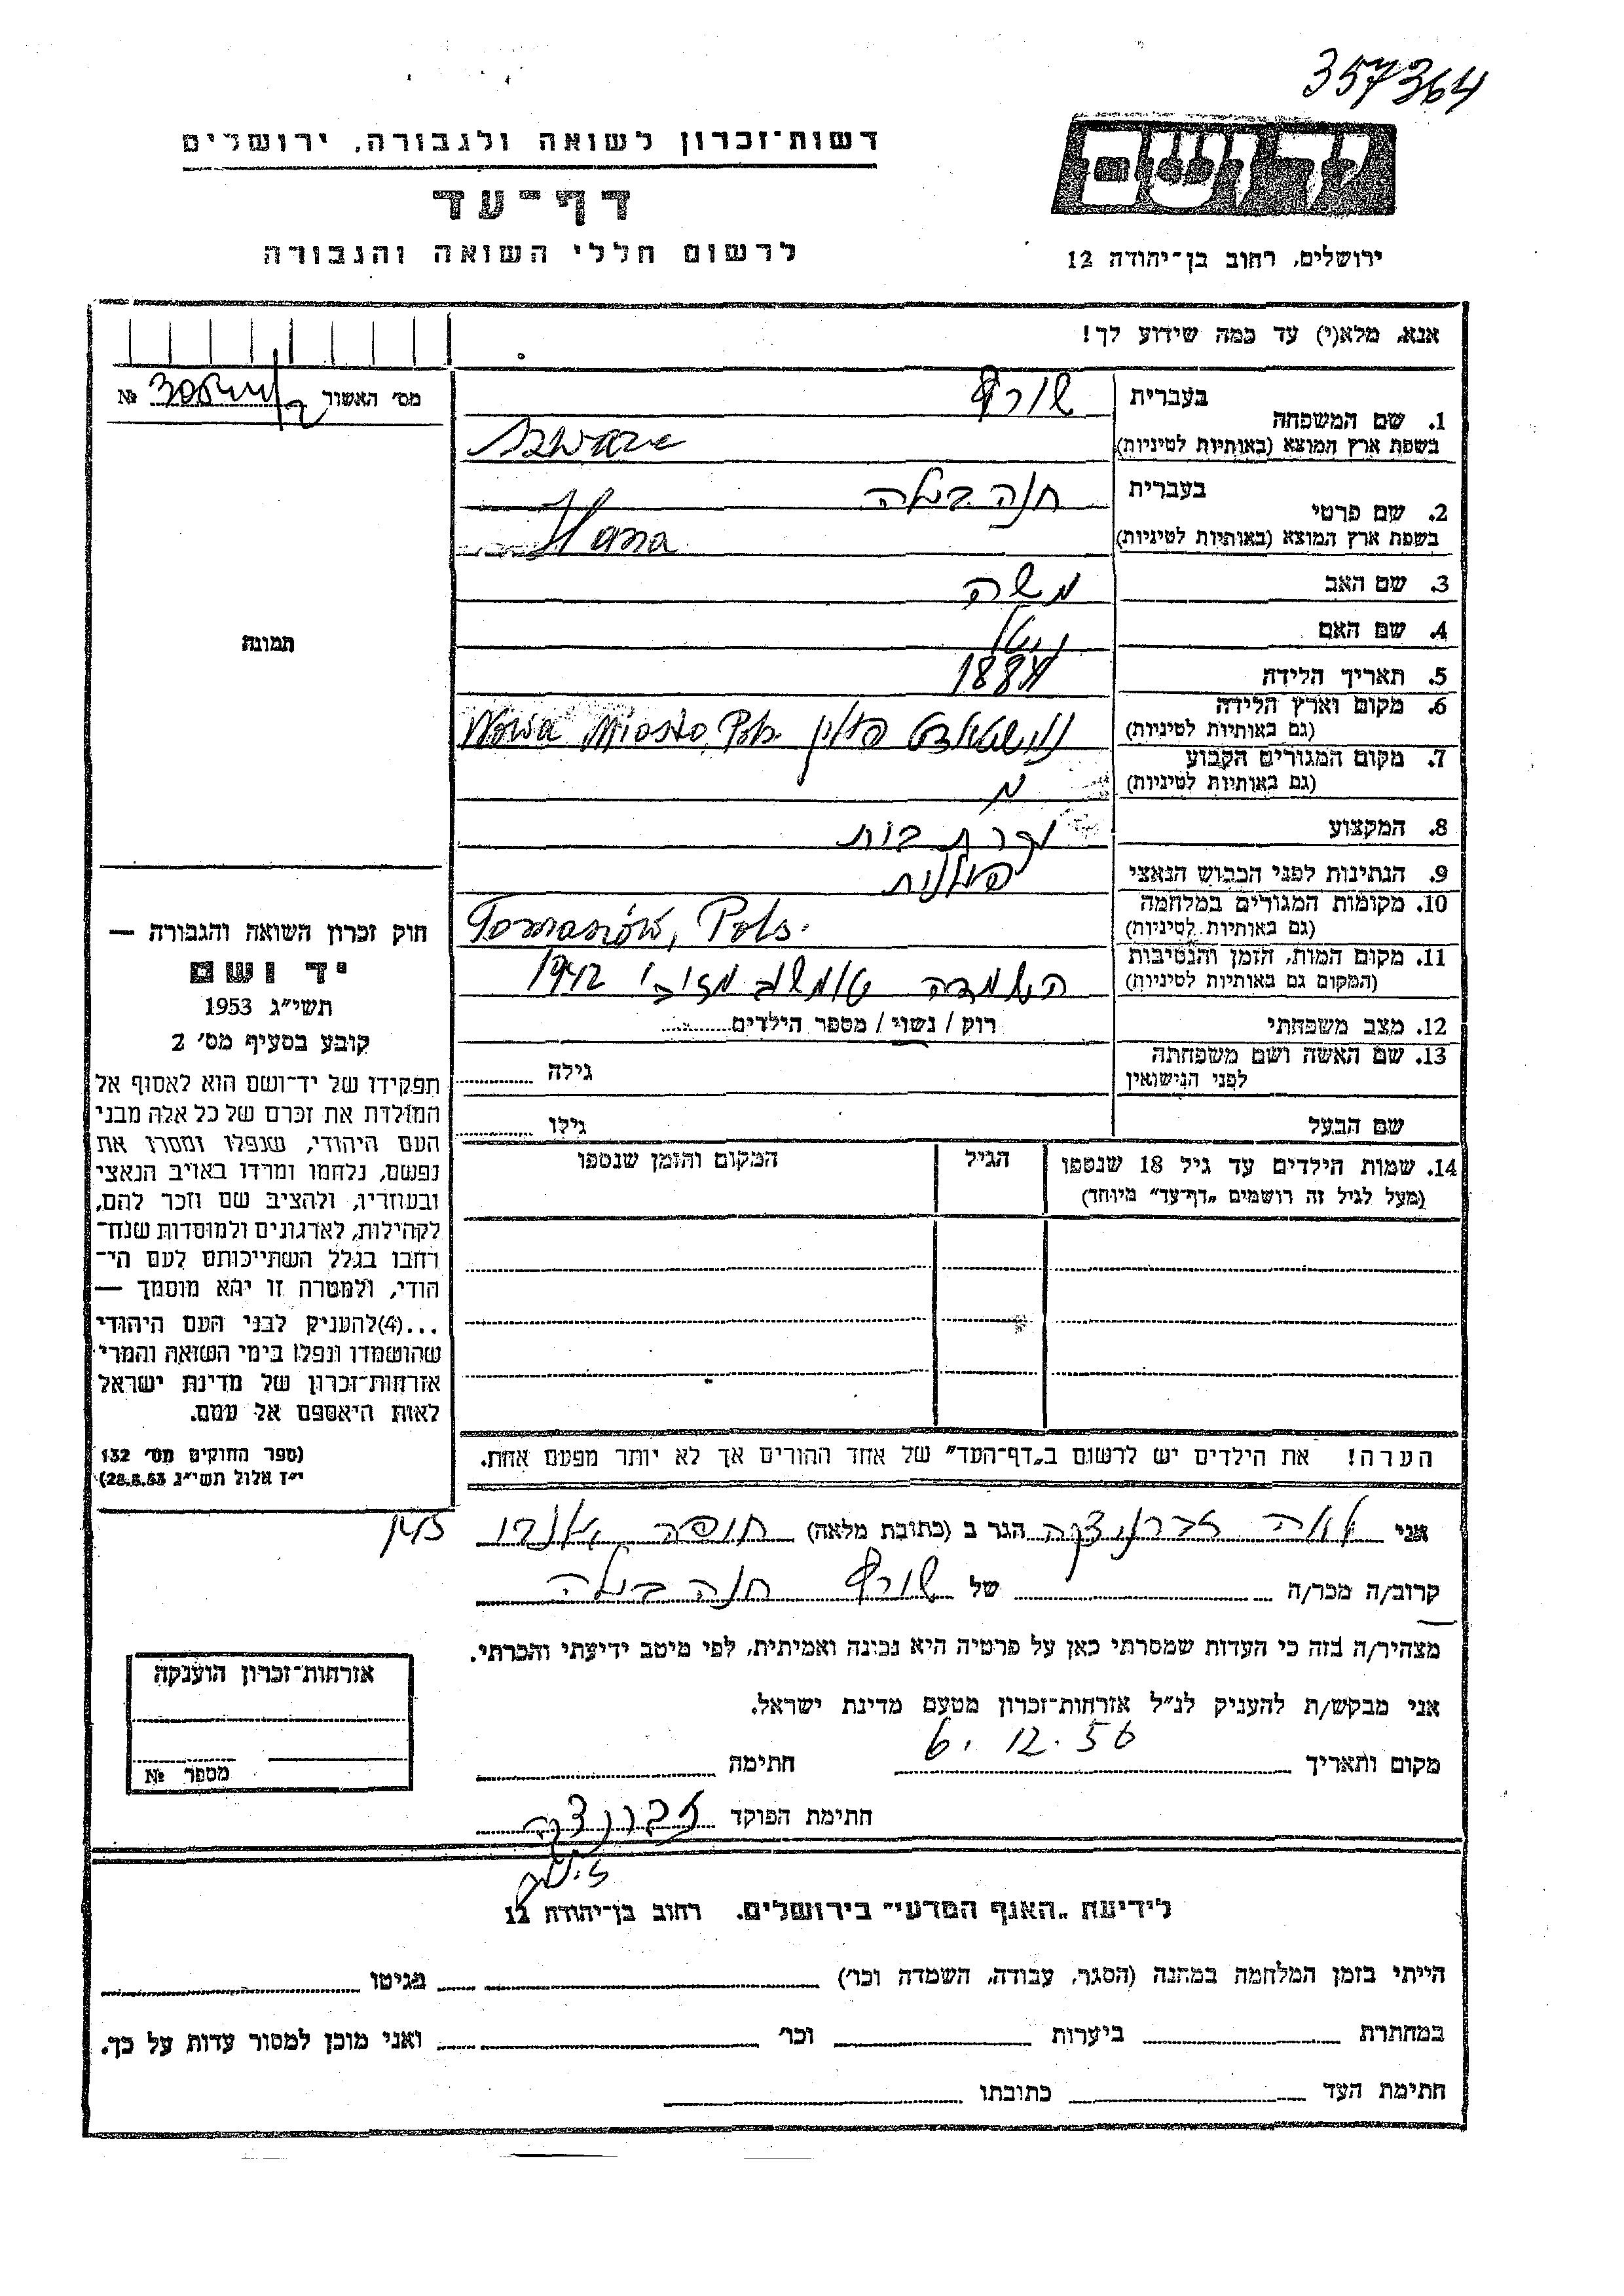 357364
רשות־זכרון לשואה ולגבורה, ירושלים
ידושם
דף־עד
לרשום חללי השואה והגבורה
ירושלים, רחוב בן־יהודה 12
אנא, מלא(י) עד כמה שידוע לך!
מס׳ האשור №
1. שם המשפחה
בעברית שורץ
בשפת ארץ המוצא (באותיות לטיניות) Szwarc
2. שם פרטי
בעברית חנה בילה
בשפת ארץ המוצא (באותיות לטיניות) Hana
3. שם האב משה
4. שם האם
5. תאריך הלידה 1884
6. מקום וארץ הלידה
(גם באותיות לטיניות) פולין Nowa Miasto, Pols.
7. מקום המגורים הקבוע
(גם באותיות לטיניות)
8. המקצוע עקרת בית
9. הנתינות לפני הכבוש הנאצי פולנית
10. מקומות המגורים במלחמה
(גם באותיות לטיניות) Tomaszów, Pols.
11. מקום המות, הזמן והנסיבות
(המקום גם באותיות לטיניות) השמדה טומשוב מזוב׳ 1942
12. מצב משפחתי רוק / נשוי / מספר הילדים
13. שם האשה ושם משפחתה
לפני הנישואין גילה
שם הבעל גילו
14. שמות הילדים עד גיל 18 שנספו הגיל המקום והזמן שנספו
(מעל לגיל זה רושמים „דף־עד״ מיוחד)
הערה! את הילדים יש לרשום ב„דף־העד״ של אחד ההורים אך לא יותר מפעם אחת.
תמונה
חוק זכרון השואה והגבורה —
יד ושם
תשי״ג 1953
קובע בסעיף מס׳ 2
תפקידו של יד־ושם הוא לאסוף אל
המולדת את זכרם של כל אלה מבני
העם היהודי, שנפלו ומסרו את
נפשם, נלחמו ומרדו באויב הנאצי
ובעוזריו, ולהציב שם וזכר להם,
לקהילות, לארגונים ולמוסדות שנח־
רחבו בגלל השתייכותם לעם הי־
הודי, ולמטרה זו יהא מוסמך —
...(4)להעניק לבני העם היהודי
שהושמדו ונפלו בימי השואה והמרי
אזרחות־זכרון של מדינת ישראל
לאות היאספם אל עמם.
(ספר החוקים מס׳ 132
י״ז אלול תשי״ג 28.8.53)
אני לאה הגר ב (כתובת מלאה)
קרוב/ה מכר/ה של שורץ חנה בילה
מצהיר/ה בזה כי העדות שמסרתי כאן על פרטיה היא נכונה ואמיתית, לפי מיטב ידיעתי והכרתי.
אני מבקש/ת להעניק לנ״ל אזרחות־זכרון מטעם מדינת ישראל.
מקום ותאריך 6. 12. 56 חתימה
חתימת הפוקד
אזרחות־זכרון הוענקה
מספר №
לידיעת „האגף המדעי״ בירושלים. רחוב בן־יהודה 12
הייתי בזמן המלחמה במחנה (הסגר, עבודה, השמדה וכו׳) בגיטו
במחתרת ביערות וכו׳ ואני מוכן למסור עדות על כך.
חתימת העד כתובתו